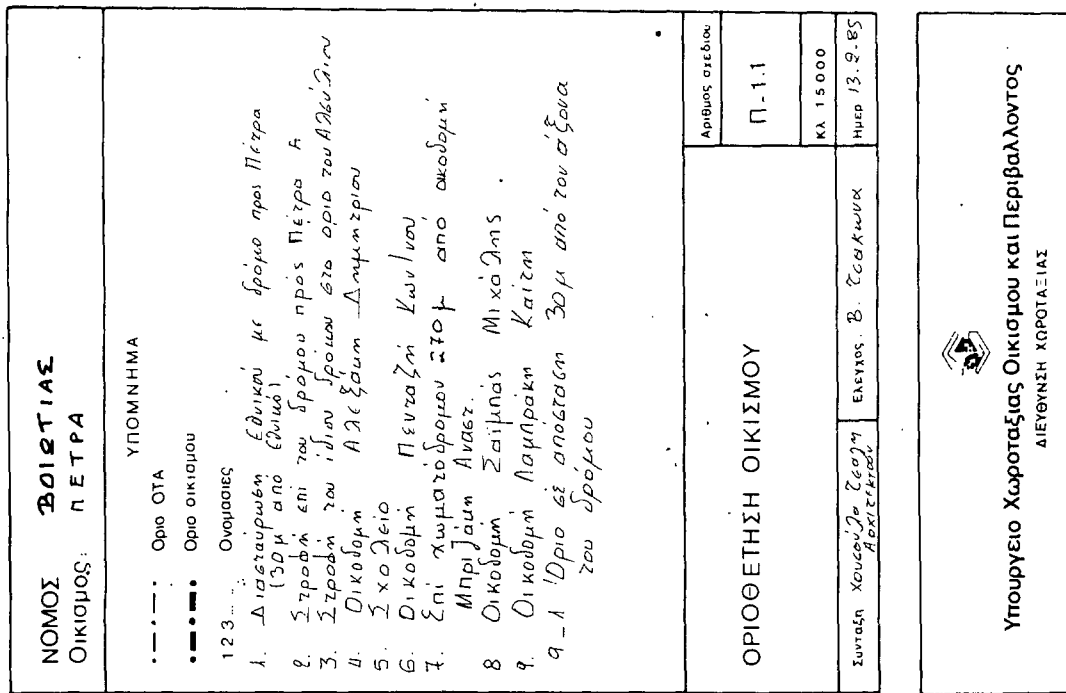 ΝΟΜΟΣ ΒΟΙΩΤΙΑΣ
Οικισμος: ΠΕΤΡΑ
ΥΠΟΜΝΗΜΑ
Οριο ΟΤΑ
Οριο οικισμου
1 2 3 ...... Ονομασιες
1. Διασταύρωση Εθνικού με δρόμο προς Πέτρα
(30μ από Εθνικό)
2. Στροφή επί του δρόμου προς Πέτρα Α
3. Στροφή του ίδιου δρόμου στο όριο του Αλσυλλίου
4. Οικοδομή Αλεξάκη Δημητρίου
5. Σχολείο
6. Οικοδομή Πενταζή Κων/νου
7. Επί χωματόδρομου 270μ από οικοδομή
Αναστ.
8 Οικοδομή Ζαϊμπάς Μιχάλης
9. Οικοδομή Λαμπράκη Καίτη
9-1 Όριο σε απόσταση 30μ από τον άξονα
του δρόμου
ΟΡΙΟΘΕΤΗΣΗ ΟΙΚΙΣΜΟΥ
Αριθμος σχεδιου
Π-1.1
Κλ 15000
Συνταξη Τσόλη
Αρχιτέκτων
Ελεγχος. Β. Τσακωνα
Ημερ 13.2-85
Υπουργειο Χωροταξιας Οικισμου και Περιβαλλοντος
ΔΙΕΥΘΥΝΣΗ ΧΩΡΟΤΑΞΙΑΣ